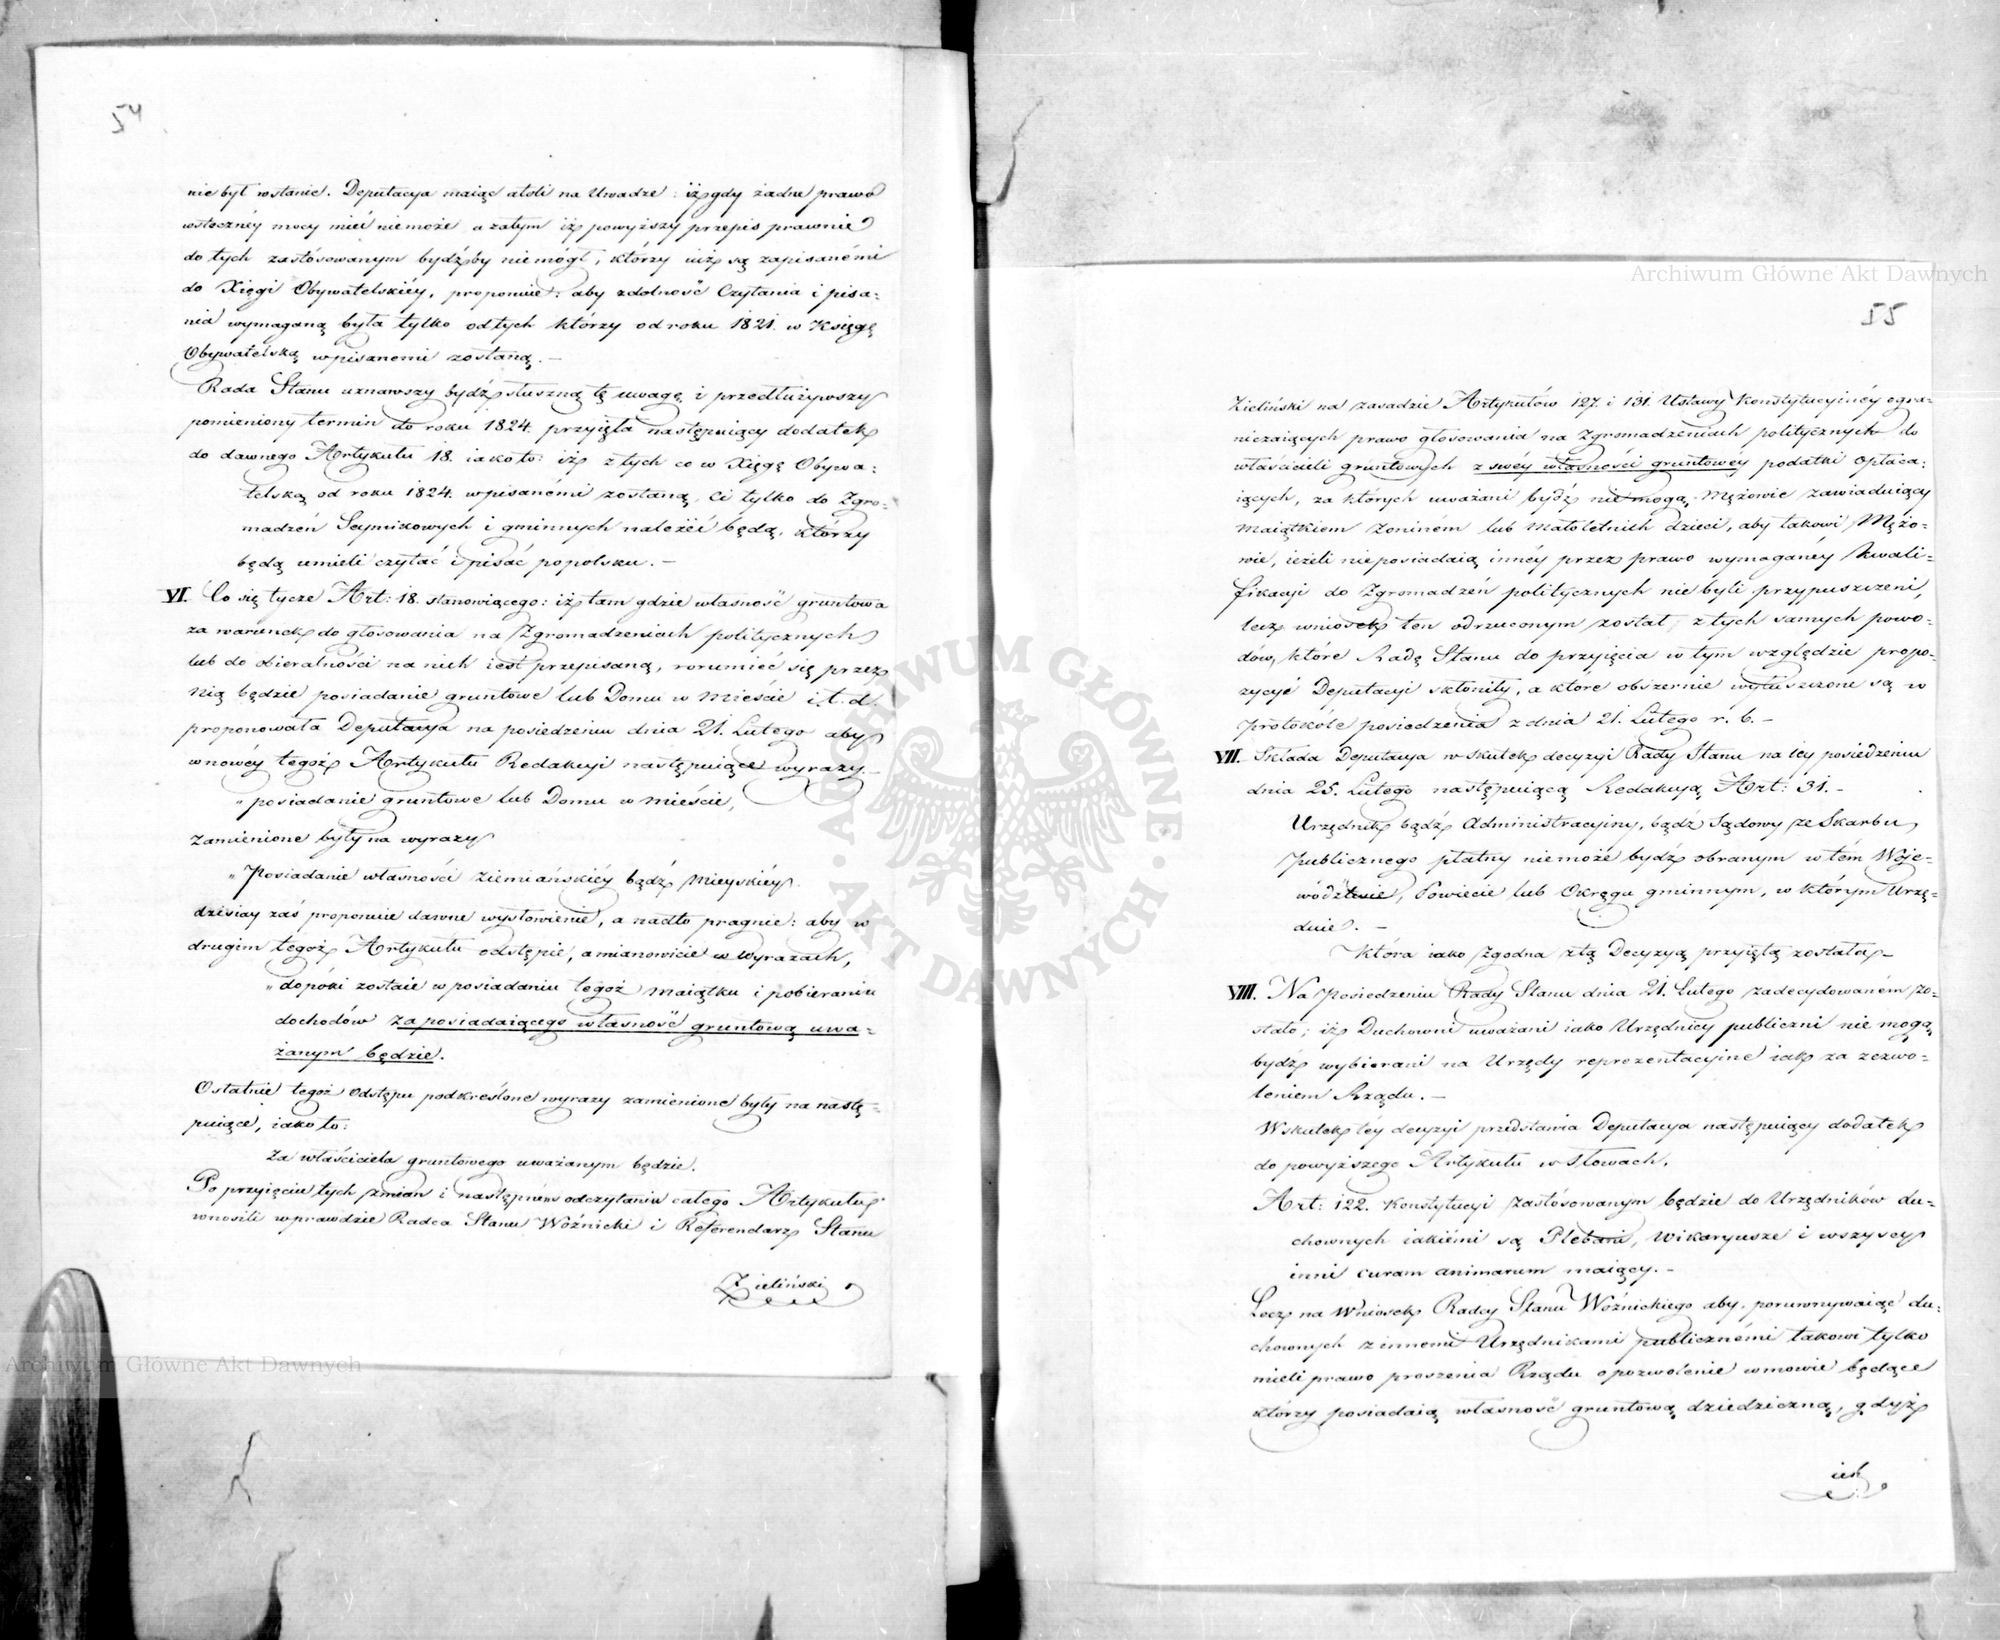 54
nie był wstanie. Deputacya maiąc atoli na Uwadze: iż gdy żadne prawo
wstecznéy mocy mieć niemoże, a zatym iż powyższy przepis prawnie
do tych zastósowanym bydźby niemógł, którzy iuż są zapisanémi
do Xięgi Obywatelskiéy, proponuie: aby zdolność Czytania i pisa=
nia wymaganą była tylko od tych którzy od roku 1821. w Księgę
Obywatelską wpisanemi zostaną. —
Rada Stanu uznawszy bydź słuszną tę uwagę i przedłużywszy
pomieniony termin do roku 1824. przyięła następuiący dodatek
do dawnego Artykułu 18. iako to: iż z tych co w Xięgę Obywa=
telską od roku 1824. wpisanémi zostaną, Ci tylko do Zgro=
madzeń Seymikowych i gminnych należéć będą, którzy
będą umieli czytać i pisać popolsku. —
VI. Co się tycze Art: 18. stanowiącego: iż tam gdzie własność gruntowa
za warunek do głosowania na Zgromadzeniach politycznych
lub do obieralności na nich iest przepisaną, rozumieć się przez
nią będzie posiadanie gruntowe lub Domu w Mieście i.t.d.
proponowała Deputacya na posiedzeniu dnia 21. Lutego aby
w nowéy tegoż Artykułu Redakcyi następuiące wyrazy. —
"posiadanie gruntowe lub Domu w Mieście,
zamienione były na wyrazy
"Posiadanie własności ziemiańskiéy bądź Mieyskiéy.
dzisiay zaś proponuie dawne wysłowienie, a nadto pragnie: aby w
drugim tegoż Artykułu odstępie, a mianowicie w wyrazach,
"dopóki zostaie w posiadaniu tegoż maiątku i pobieraniu
dochodów za posiadaiącego własność gruntową uwa=
żanym będzie.
Ostatnie tegoż odstępu podkreślone wyrazy zamienione były na nastę=
puiące, iako to:
Za właściciela gruntowego uważanym będzie.
Po przyięciu tych zmian i następném odczytaniu całego Artykułu
wnosili wprawdzie Radca Stanu Woźnicki i Referendarz Stanu
Zieliński
55
Zieliński na zasadzie Artykułów 127. i 131. Ustawy Konstytucyinéy ogra=
niczaiących prawo głosowania na Zgromadzeniach politycznych do
właścicieli gruntowych z swéy własności gruntowéy podatki opłaca=
iących, za których uważani bydź nie mogą Mężowie zawiaduiący
Maiątkiem Żoniném lub Małoletnich dzieci, aby takowi Mężo=
wie, ieżeli nie posiadaią innéy przez prawo wymaganéy kwali=
fikacyi do Zgromadzeń politycznych nie byli przypuszczeni,
lecz wniosek ten odrzuconym został, z tych samych powo=
dów, które Radę Stanu do przyięcia w tym względzie propo=
zycyi Deputacyi skłoniły, a które obszernie wyłuszczone są w
Protokóle posiedzenia z dnia 21. Lutego r. b. —
VII. Składa Deputacya w skutek decyzyi Rady Stanu na iey posiedzeniu
dnia 25. Lutego następuiącą Redakcyą Art: 31. —
Urzędnik bądź Administracyiny, bądź Sądowy ze Skarbu
Publicznego płatny niemoże bydź obranym w tém Woje=
wództwie, Powiecie lub Okręgu gminnym, w którym Urzę=
duie. —
Która iako zgodna z tą Decyzyą przyiętą została. —
VIII. Na Posiedzeniu Rady Stanu dnia 21. Lutego zadecydowaném zo=
stało; iż Duchowni uważani iako Urzędnicy publiczni nie mogą
bydź wybierani na Urzędy reprezentacyine iak za zezwo=
leniem Rządu. —
W skutek téy decyzyi przedstawia Deputacya następuiący dodatek
do powyższego Artykułu w słowach,
Art: 122. Konstytucyi zastósowanym będzie do Urzędników du=
chownych iakiémi są Plebani, Wikaryusze i wszyscy
inni curam animarum maiący. —
Lecz na Wniosek Radcy Stanu Woźnickiego aby porównywaiąc du=
chownych z innemi Urzędnikami publicznémi takowi tylko
mieli prawo proszenia Rządu o pozwolenie w mowie będące
którzy posiadaią własność gruntową dziedziczną, gdyż
iest
Archiwum Główne Akt Dawnych
Archiwum Główne Akt Dawnych
ARCHIWUM GŁÓWNE · AKT DAWNYCH ·